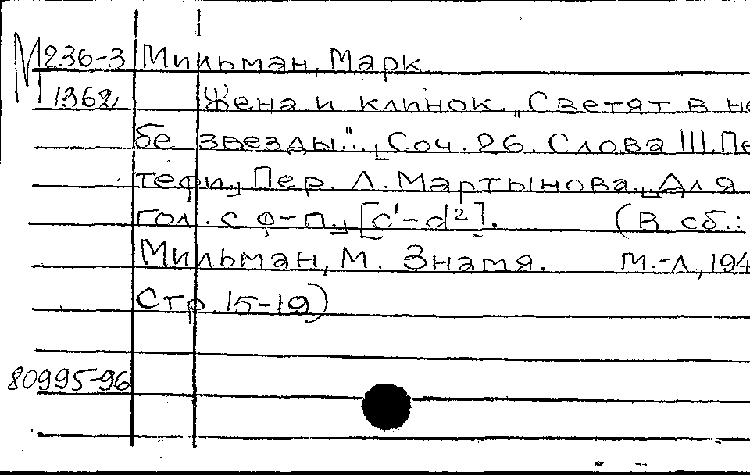 М236-3 Мильман, Марк.
1362 Жена и клинок. „Светят в не
бе звезды". Соч. 26. Слова Ш. Пе
тефи, Пер. Л. Мартынова. Для
гол. с ф-п. [c¹-d²]. (В сб.:
Мильман, М. Знамя. М.-Л, 194
Стр. 15-19)
80995-96